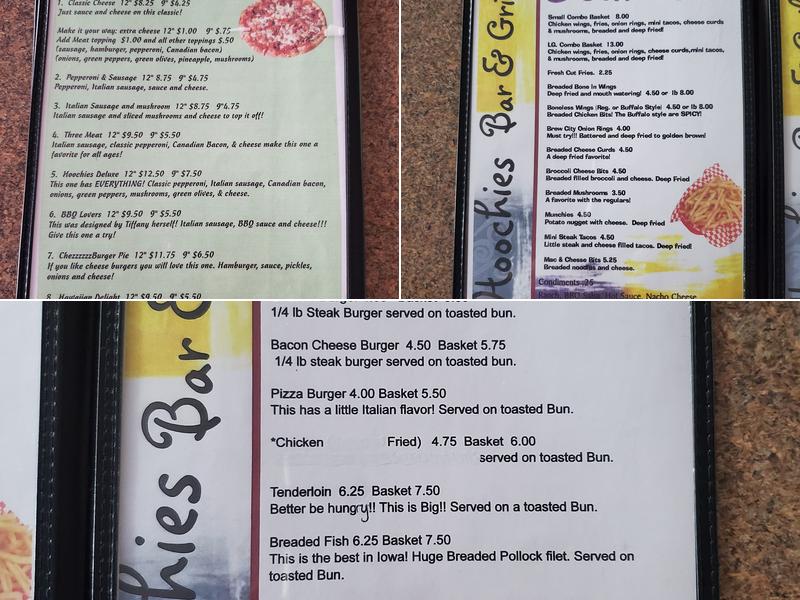 1. Classic Cheese 12" $8.25 9" $6.25
Just sauce and cheese on this classic!
Make it your way: extra cheese 12" $1.00 9" $.75
Add Meat topping $1.00 and all other toppings $.50
(sausage, hamburger, pepperoni, Canadian bacon)
(onions, green peppers, green olives, pineapple, mushrooms)
2. Pepperoni & Sausage 12" 8.75 9" $6.75
Pepperoni, Italian sausage, sauce and cheese.
3. Italian Sausage and mushroom 12" $8.75 9"6.75
Italian sausage and sliced mushrooms and cheese to top it off!
4. Three Meat 12" $9.50 9" $5.50
Italian sausage, classic pepperoni, Canadian Bacon, & cheese make this one a
favorite for all ages!
5. Hoochies Deluxe 12" $12.50 9" $7.50
This one has EVERYTHING! Classic pepperoni, Italian sausage, Canadian bacon,
onions, green peppers, mushrooms, green olives, & cheese.
6. BBQ Lovers 12" $9.50 9" $5.50
This was designed by Tiffany herself! Italian sausage, BBQ sauce and cheese!!!
Give this one a try!
7. ChezzzzzzBurger Pie 12" $11.75 9" $6.50
If you like cheese burgers you will love this one. Hamburger, sauce, pickles,
onions and cheese!
8. Hawtaiian Delight 12" $9.50 9" $5.50
Hoochies Bar & Gri
Small Combo Basket 8.00
Chicken wings, fries, onion rings, mini tacos, cheese curds
& mushrooms, breaded and deep fried!
LG. Combo Basket 13.00
Chicken wings, fries, onion rings, cheese curds,mini tacos,
& mushrooms, breaded and deep fried!
Fresh Cut Fries. 2.25
Breaded Bone in Wings
Deep fried and mouth watering! 4.50 or lb 8.00
Boneless Wings (Reg. or Buffalo Style) 4.50 or lb 8.00
Breaded Chicken Bits! The Buffalo style are SPICY!
Brew City Onion Rings 4.00
Must try!!! Battered and deep fried to golden brown!
Breaded Cheese Curds 4.50
A deep fried favorite!
Broccoli Cheese Bits 4.50
Breaded filled broccoli and cheese. Deep Fried
Breaded Mushrooms 3.50
A favorite with the regulars!
Munchies 4.50
Potato nugget with cheese. Deep fried
Mini Steak Tacos 4.50
Little steak and cheese filled tacos. Deep fried!
Mac & Cheese Bits 5.25
Breaded noodles and cheese.
Condiments .25
Ranch, BBQ, Salsa, Hot Sauce, Nacho Cheese
hies Bar &
1/4 lb Steak Burger served on toasted bun.
Bacon Cheese Burger 4.50 Basket 5.75
1/4 lb steak burger served on toasted bun.
Pizza Burger 4.00 Basket 5.50
This has a little Italian flavor! Served on toasted Bun.
*Chicken Fried) 4.75 Basket 6.00
served on toasted Bun.
Tenderloin 6.25 Basket 7.50
Better be hungry!! This is Big!! Served on a toasted Bun.
Breaded Fish 6.25 Basket 7.50
This is the best in Iowa! Huge Breaded Pollock filet. Served on
toasted Bun.